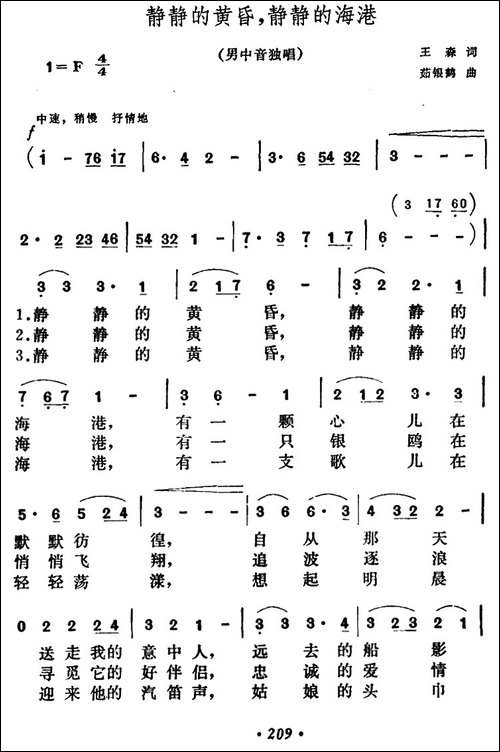 静静的黄昏,静静的海港
（男中音独唱）
王森 词
茹银鹤 曲
1=F 4/4
中速，稍慢 抒情地
f
(i - 76 i7 | 6· 4 2 - | 3· 6 54 32 | 3 - - -
(3 17 60)
2· 2 23 46 | 54 32 1 - | 7· 3 7 17 | 6 - - -)
3 3 3· 1 | 2 17 6 - | 3 2 2· 1
1.静 静的 黄 昏， 静 静的
2.静 静的 黄 昏， 静 静的
3.静 静的 黄 昏， 静 静的
7 67 1 - | 3 6 - 1 | 2 12 3· 3
海 港， 有一 颗 心 儿在
海 港， 有一 只 银 鸥在
海 港， 有一 支 歌 儿在
5· 6 5 24 | 3 - - - | 3 6 6· 3 | 4 32 2 -
默默彷 徨， 自从 那 天
悄悄飞 翔， 追波 逐 浪
轻轻荡 漾， 想起 明 晨
0 2 2 24 | 3 2 1 - | 3 3 3· 4 | 3 21 1 -
送走我的 意中人， 远去的船 影
寻觅它的 好伴侣， 忠诚的爱 情
迎来他的 汽笛声， 姑娘的头 巾
· 209 ·